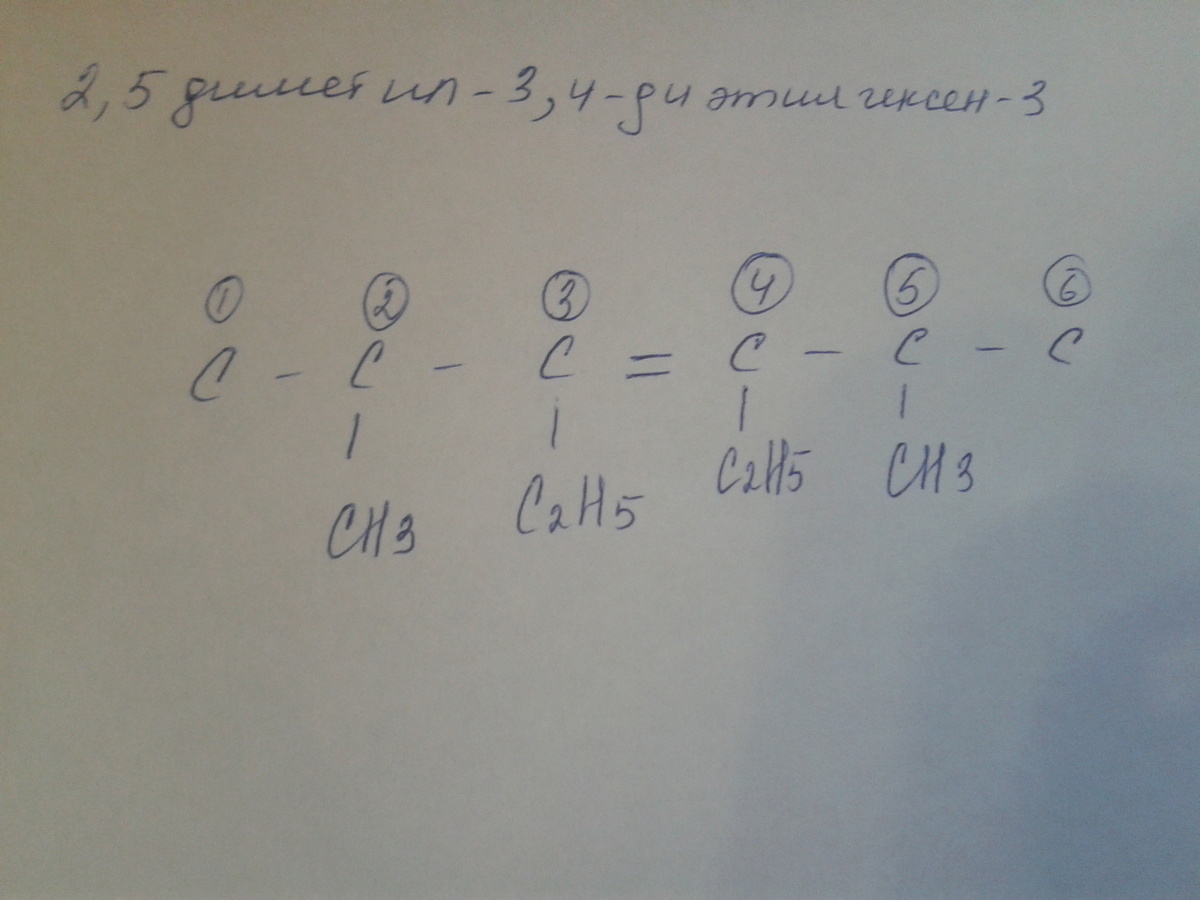 2,5 диметил-3,4-диэтилгексен-3
① ② ③ ④ ⑤ ⑥
C - C - C = C - C - C
| | | |
CH3 C2H5 C2H5 CH3